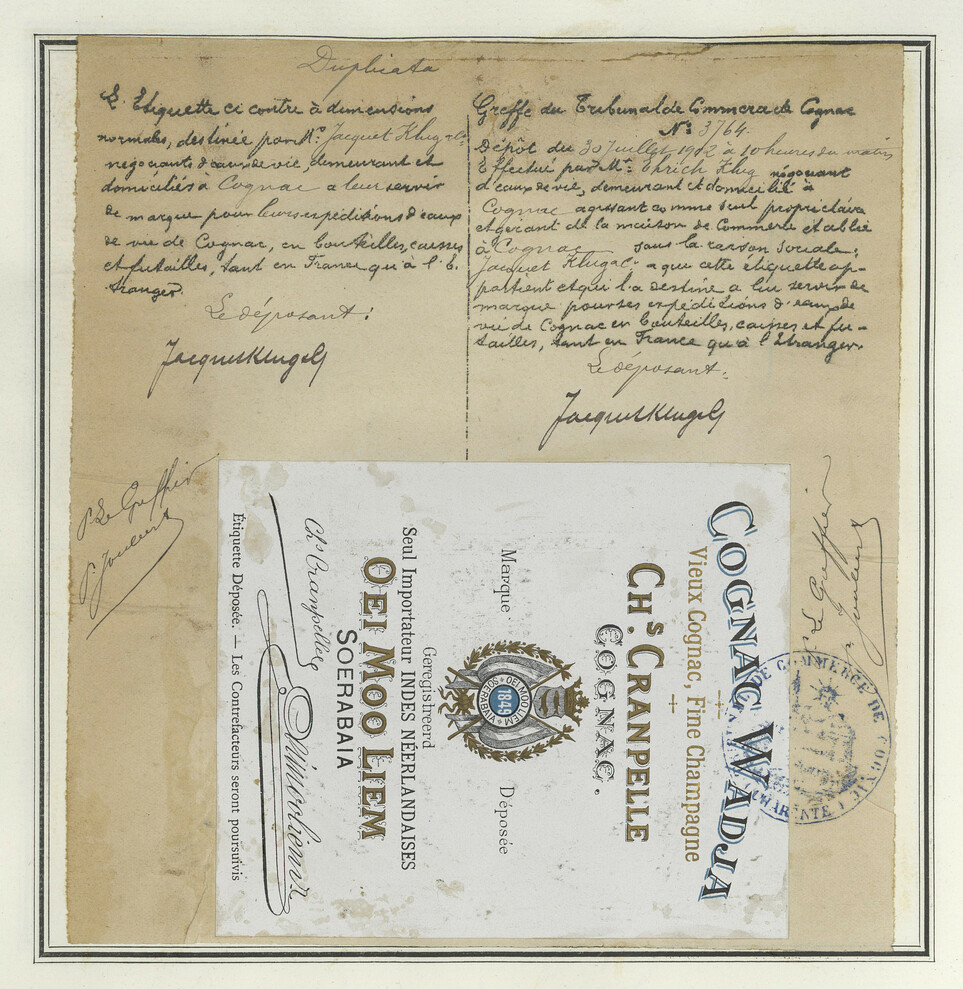 Duplicata
L'Etiquette ci contre à dimensions
normales, destinée par Mr. Jacquet Klug & Co
négociants d'eaux de vie, demeurant et
domiciliés à Cognac a leur servir
de marque pour leurs expéditions d'eaux
de vie de Cognac, en bouteilles, caisses
et futailles, tant en France qu'à l'E-
tranger.
Le déposant:
Jacquet Klug & Co
P. Le Greffier
Greffe du Tribunal de Commerce de Cognac
No 3764.
Dépôt du 30 Juillet 1912 à 10 heures du matin
Effectué par Mr. Ehrich Klug négociant
d'eaux de vie, demeurant et domicilié à
Cognac agissant comme seul propriétaire
et gérant de la maison de Commerce établie
à Cognac sous la raison sociale:
Jacquet Klug & Co - a que cette étiquette ap-
partient et qui l'a destine a lui servir de
marque pour ses expéditions d'eaux de
vie de Cognac en bouteilles, caisses et fu-
tailles, tant en France qu'à l'Etranger.
Le déposant:
Jacquet Klug & Co
Le Greffier
COGNAC WADJA
Vieux Cognac, Fine Champagne
CHs. CRANPELLE
COGNAC.
Marque Déposée
OEI MOO LIEM
1849
SOERABAIA
Geregistreerd
Seul Importateur INDES NÉERLANDAISES
OEI MOO LIEM
SOERABAIA
Chs Cranpelle
Étiquette Déposée. — Les Contrefacteurs seront poursuivis
DE COMMERCE DE COGNAC
CHARENTE